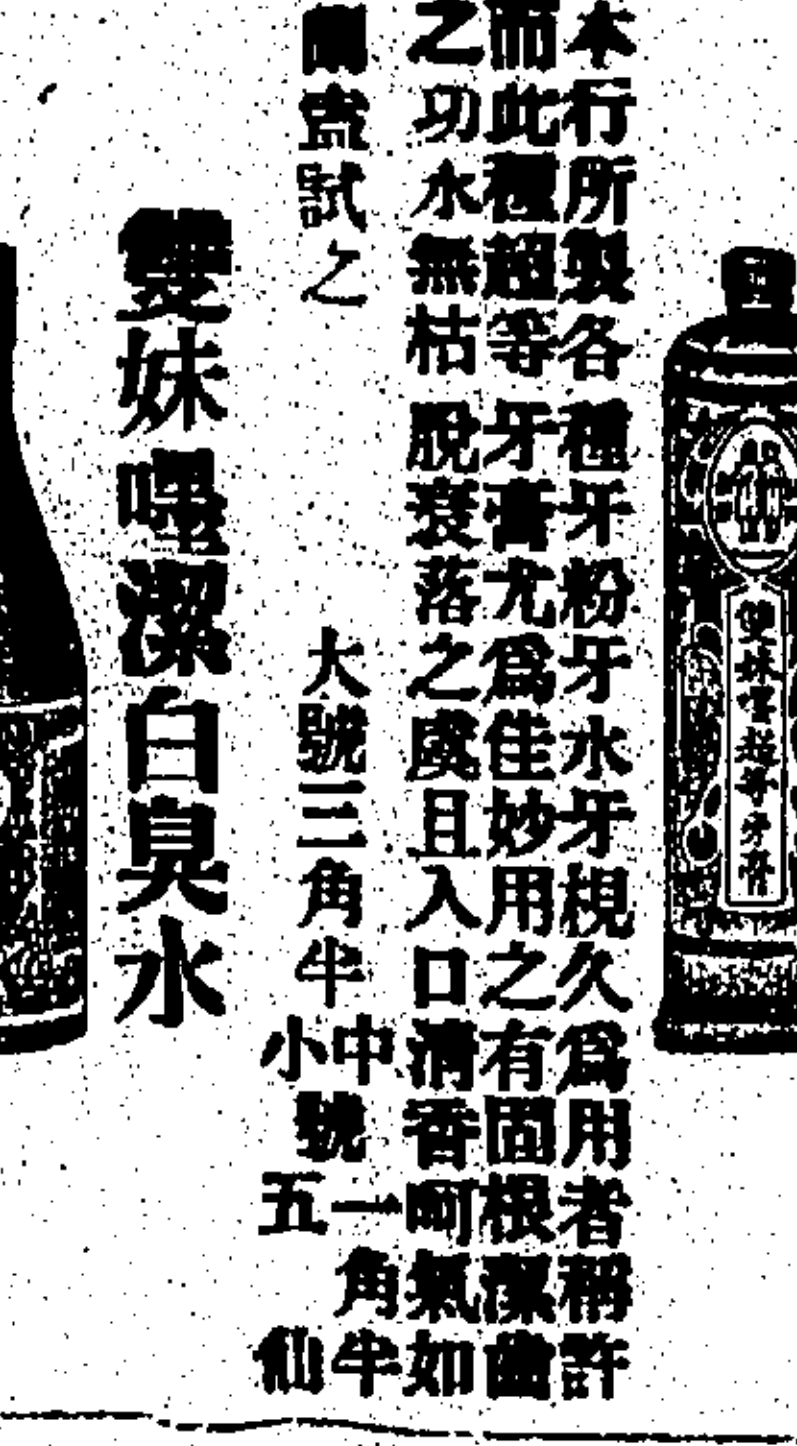 本行所製各種牙粉牙水牙梘久爲用者稱許
而此種超等牙膏尤爲佳妙用之有固根潔齒
之功永無枯脫衰落之虞且入口清香呵氣如
蘭盍試之
大號三角半
中號一角半
小號五仙
雙妹嚜潔白臭水
雙妹嚜超等牙膏